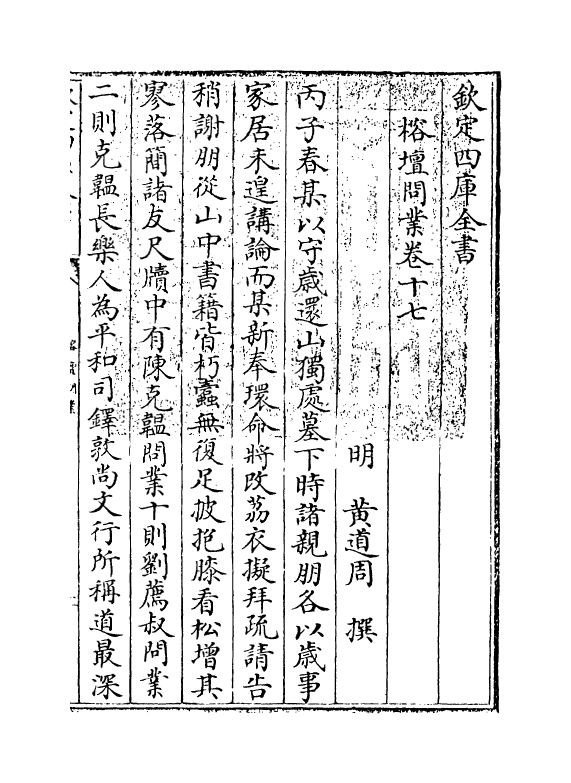 欽定四庫全書
榕壇問業卷十七
明 黃道周 撰
丙子春某以守歲還山獨處墓下時諸親朋各以歲事
家居未遑講論而某新奉環命將改荔衣擬拜疏請告
稍謝朋從山中書籍皆朽蠹無復足披抱膝看松增其
寥落簡諸友尺牘中有陳克韞問業十則劉薦叔問業
二則克韞長樂人為平和司鐸敦尚文行所稱道最深